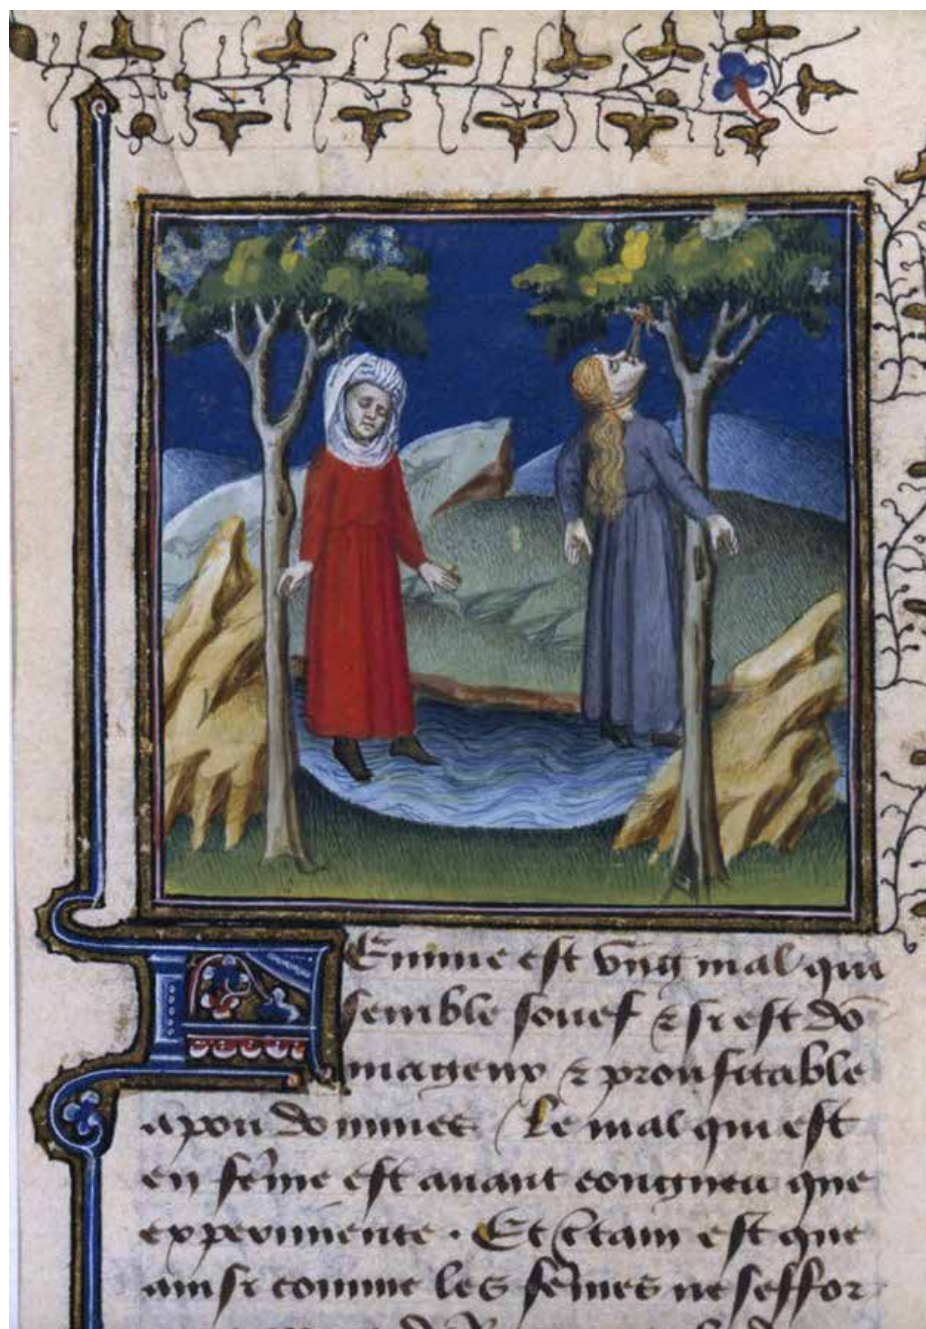 Femme est vng mal qui
semble souef & si est dõ
mageux & proufitable
a pou dommes / Le mal qui est
en fẽme est auant congneu que
experimente · Et c̃tain est que
ainsi comme les fẽmes ne seffor